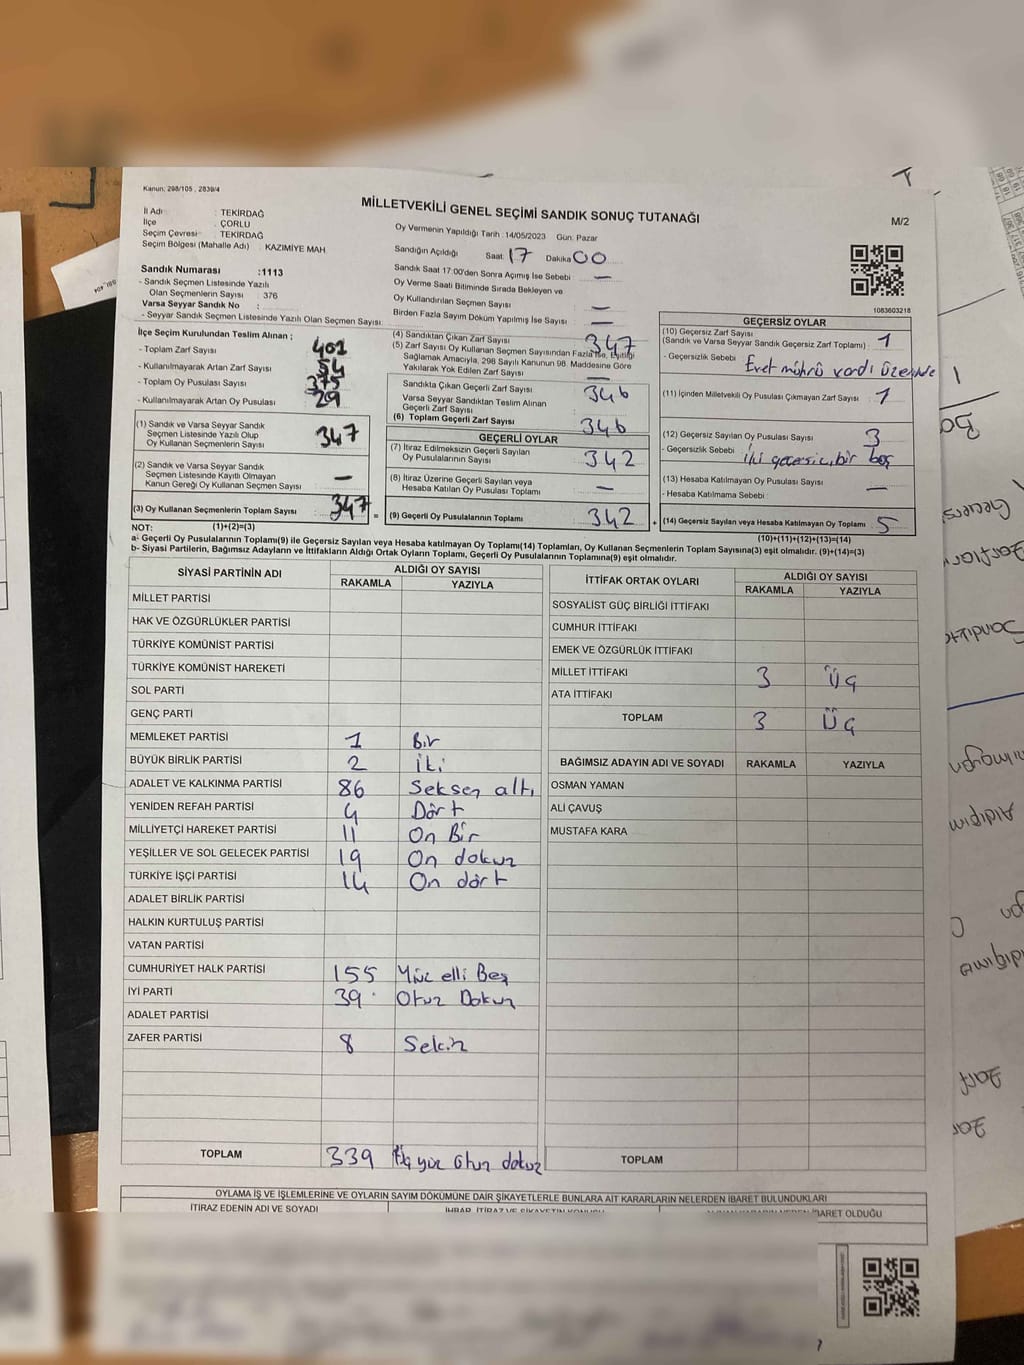 Kanun: 298/105 , 2839/4
MİLLETVEKİLİ GENEL SEÇİMİ SANDIK SONUÇ TUTANAĞI
M/2
İl Adı : TEKİRDAĞ
İlçe : ÇORLU
Seçim Çevresi : TEKİRDAĞ
Seçim Bölgesi (Mahalle Adı) : KAZIMİYE MAH
Sandık Numarası :1113
- Sandık Seçmen Listesinde Yazılı
Olan Seçmenlerin Sayısı : 376
Varsa Seyyar Sandık No :
- Seyyar Sandık Seçmen Listesinde Yazılı Olan Seçmen Sayısı
Oy Vermenin Yapıldığı Tarih :14/05/2023 Gün: Pazar
Sandığın Açıldığı Saat: 17 Dakika 00
Sandık Saat 17:00'den Sonra Açımış İse Sebebi : —
Oy Verme Saati Bitiminde Sırada Bekleyen ve
Oy Kullandırılan Seçmen Sayısı : —
Birden Fazla Sayım Döküm Yapılmış İse Sayısı : —
1083603218
İlçe Seçim Kurulundan Teslim Alınan ;
- Toplam Zarf Sayısı : 401
- Kullanılmayarak Artan Zarf Sayısı : 54
- Toplam Oy Pusulası Sayısı : 375
- Kullanılmayarak Artan Oy Pusulası : 29
(1) Sandık ve Varsa Seyyar Sandık
Seçmen Listesinde Yazılı Olup
Oy Kullanan Seçmenlerin Sayısı : 347
(2) Sandık ve Varsa Seyyar Sandık
Seçmen Listesinde Kayıtlı Olmayan
Kanun Gereği Oy Kullanan Seçmen Sayısı : —
(3) Oy Kullanan Seçmenlerin Toplam Sayısı : 347 =
(4) Sandıktan Çıkan Zarf Sayısı : 347
(5) Zarf Sayısı Oy Kullanan Seçmen Sayısından Fazla İse, Eşitliği
Sağlamak Amacıyla, 298 Sayılı Kanunun 98. Maddesine Göre
Yakılarak Yok Edilen Zarf Sayısı : —
Sandıkta Çıkan Geçerli Zarf Sayısı : 346
Varsa Seyyar Sandıktan Teslim Alınan
Geçerli Zarf Sayısı :
(6) Toplam Geçerli Zarf Sayısı : 346
GEÇERLİ OYLAR
(7) İtiraz Edilmeksizin Geçerli Sayılan
Oy Pusulalarının Sayısı : 342
(8) İtiraz Üzerine Geçerli Sayılan veya
Hesaba Katılan Oy Pusulası Toplamı : —
(9) Geçerli Oy Pusulalarının Toplamı : 342 +
GEÇERSİZ OYLAR
(10) Geçersiz Zarf Sayısı
(Sandık ve Varsa Seyyar Sandık Geçersiz Zarf Toplamı) : 1
- Geçersizlik Sebebi : Evet mührü vardı üzerinde
(11) İçinden Milletvekili Oy Pusulası Çıkmayan Zarf Sayısı : 1
(12) Geçersiz Sayılan Oy Pusulası Sayısı : 3
- Geçersizlik Sebebi : iki geçersiz, bir boş
(13) Hesaba Katılmayan Oy Pusulası Sayısı : —
- Hesaba Katılmama Sebebi :
(14) Geçersiz Sayılan veya Hesaba Katılmayan Oy Toplamı : 5
NOT: (1)+(2)=(3) (10)+(11)+(12)+(13)=(14)
a- Geçerli Oy Pusulalarının Toplamı(9) ile Geçersiz Sayılan veya Hesaba katılmayan Oy Toplamı(14) Toplamları, Oy Kullanan Seçmenlerin Toplam Sayısına(3) eşit olmalıdır. (9)+(14)=(3)
b- Siyasi Partilerin, Bağımsız Adayların ve İttifakların Aldığı Ortak Oyların Toplamı, Geçerli Oy Pusulalarının Toplamına(9) eşit olmalıdır.
SİYASİ PARTİNİN ADI ALDIĞI OY SAYISI
RAKAMLA YAZIYLA
MİLLET PARTİSİ
HAK VE ÖZGÜRLÜKLER PARTİSİ
TÜRKİYE KOMÜNİST PARTİSİ
TÜRKİYE KOMÜNİST HAREKETİ
SOL PARTİ
GENÇ PARTİ
MEMLEKET PARTİSİ 1 Bir
BÜYÜK BİRLİK PARTİSİ 2 İki
ADALET VE KALKINMA PARTİSİ 86 Seksen altı
YENİDEN REFAH PARTİSİ 4 Dört
MİLLİYETÇİ HAREKET PARTİSİ 11 On Bir
YEŞİLLER VE SOL GELECEK PARTİSİ 19 On dokuz
TÜRKİYE İŞÇİ PARTİSİ 14 On dört
ADALET BİRLİK PARTİSİ
HALKIN KURTULUŞ PARTİSİ
VATAN PARTİSİ
CUMHURİYET HALK PARTİSİ 155 Yüz elli Beş
İYİ PARTİ 39 Otuz Dokuz
ADALET PARTİSİ
ZAFER PARTİSİ 8 Sekiz
TOPLAM 339 Üç yüz Otuz dokuz
İTTİFAK ORTAK OYLARI ALDIĞI OY SAYISI
RAKAMLA YAZIYLA
SOSYALİST GÜÇ BİRLİĞİ İTTİFAKI
CUMHUR İTTİFAKI
EMEK VE ÖZGÜRLÜK İTTİFAKI
MİLLET İTTİFAKI 3 Üç
ATA İTTİFAKI
TOPLAM 3 Üç
BAĞIMSIZ ADAYIN ADI VE SOYADI RAKAMLA YAZIYLA
OSMAN YAMAN
ALİ ÇAVUŞ
MUSTAFA KARA
TOPLAM
OYLAMA İŞ VE İŞLEMLERİNE VE OYLARIN SAYIM DÖKÜMÜNE DAİR ŞİKAYETLERLE BUNLARA AİT KARARLARIN NELERDEN İBARET BULUNDUKLARI
İTİRAZ EDENİN ADI VE SOYADI
İBARET OLDUĞU